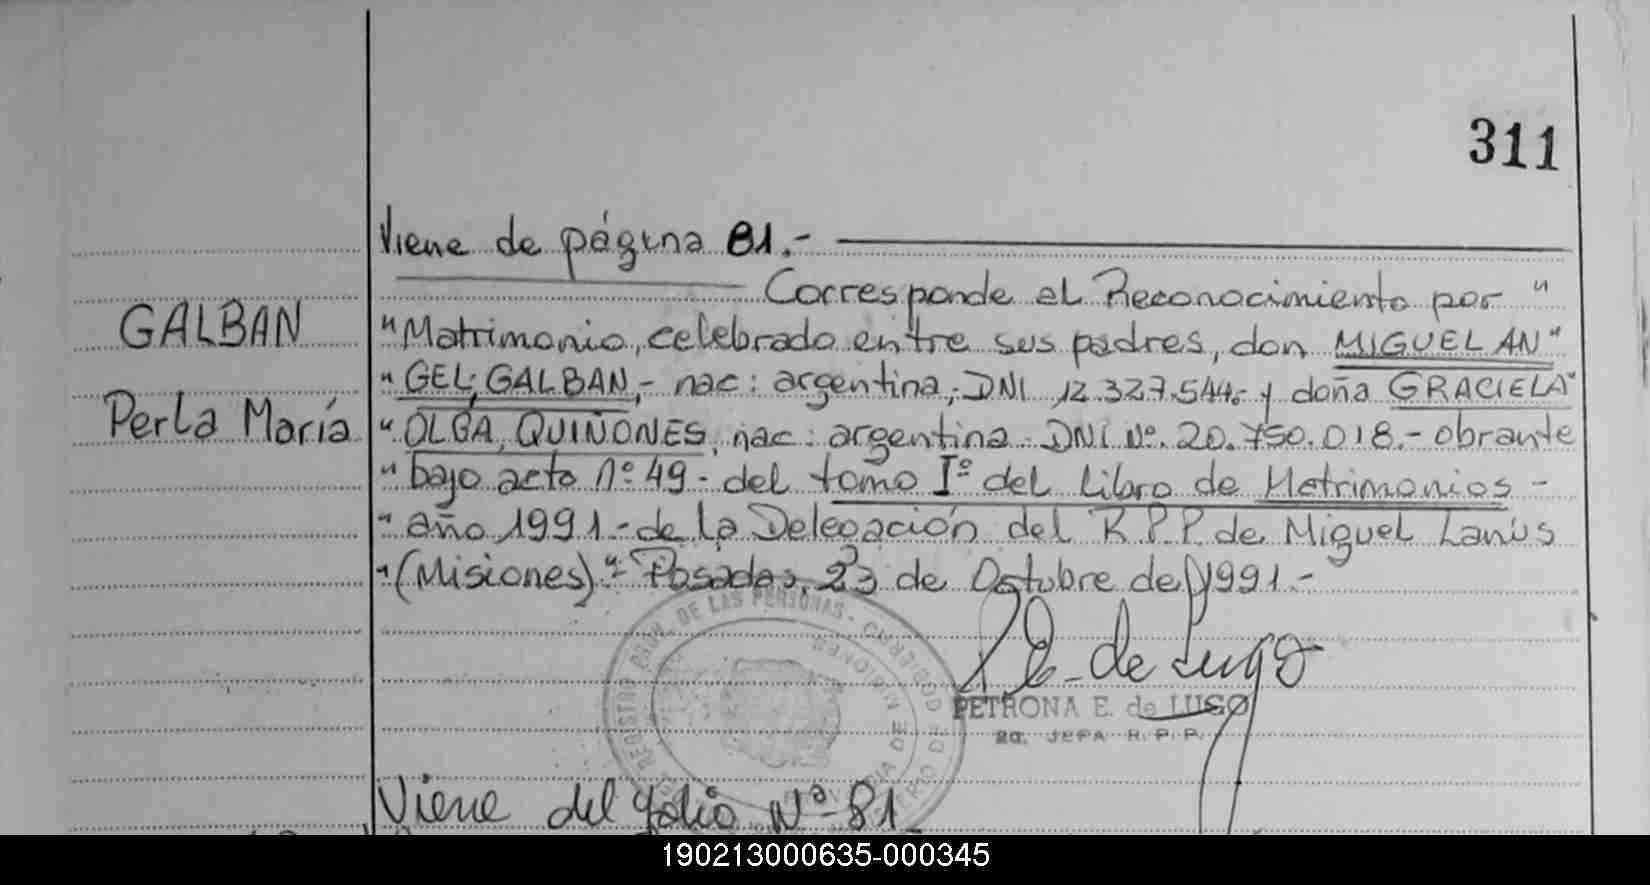 311
Viene de página 81.-
Corresponde al Reconocimiento por "
GALBAN
"Matrimonio, celebrado entre sus padres, don MIGUEL AN"
"GEL, GALBAN,- nac: argentina,- DNI 12.327.544.- y doña GRACIELA"
Perla María
"OLGA, QUIÑONES, nac: argentina. DNI Nº. 20.750.018.- obrante
"bajo acta nº 49 - del tomo Iº del Libro de Matrimonios -
"año 1991.- de la Delegación del R.P.P. de Miguel Lanús
"(Misiones)"- Posadas, 23 de Octubre de 1991.-
REGISTRO PROV. DE LAS PERSONAS -
MISIONES
P.E. de Lugo
PETRONA E. de LUGO
2a. JEFA R. P. P.
Viene del folio Nº 81
190213000635-000345